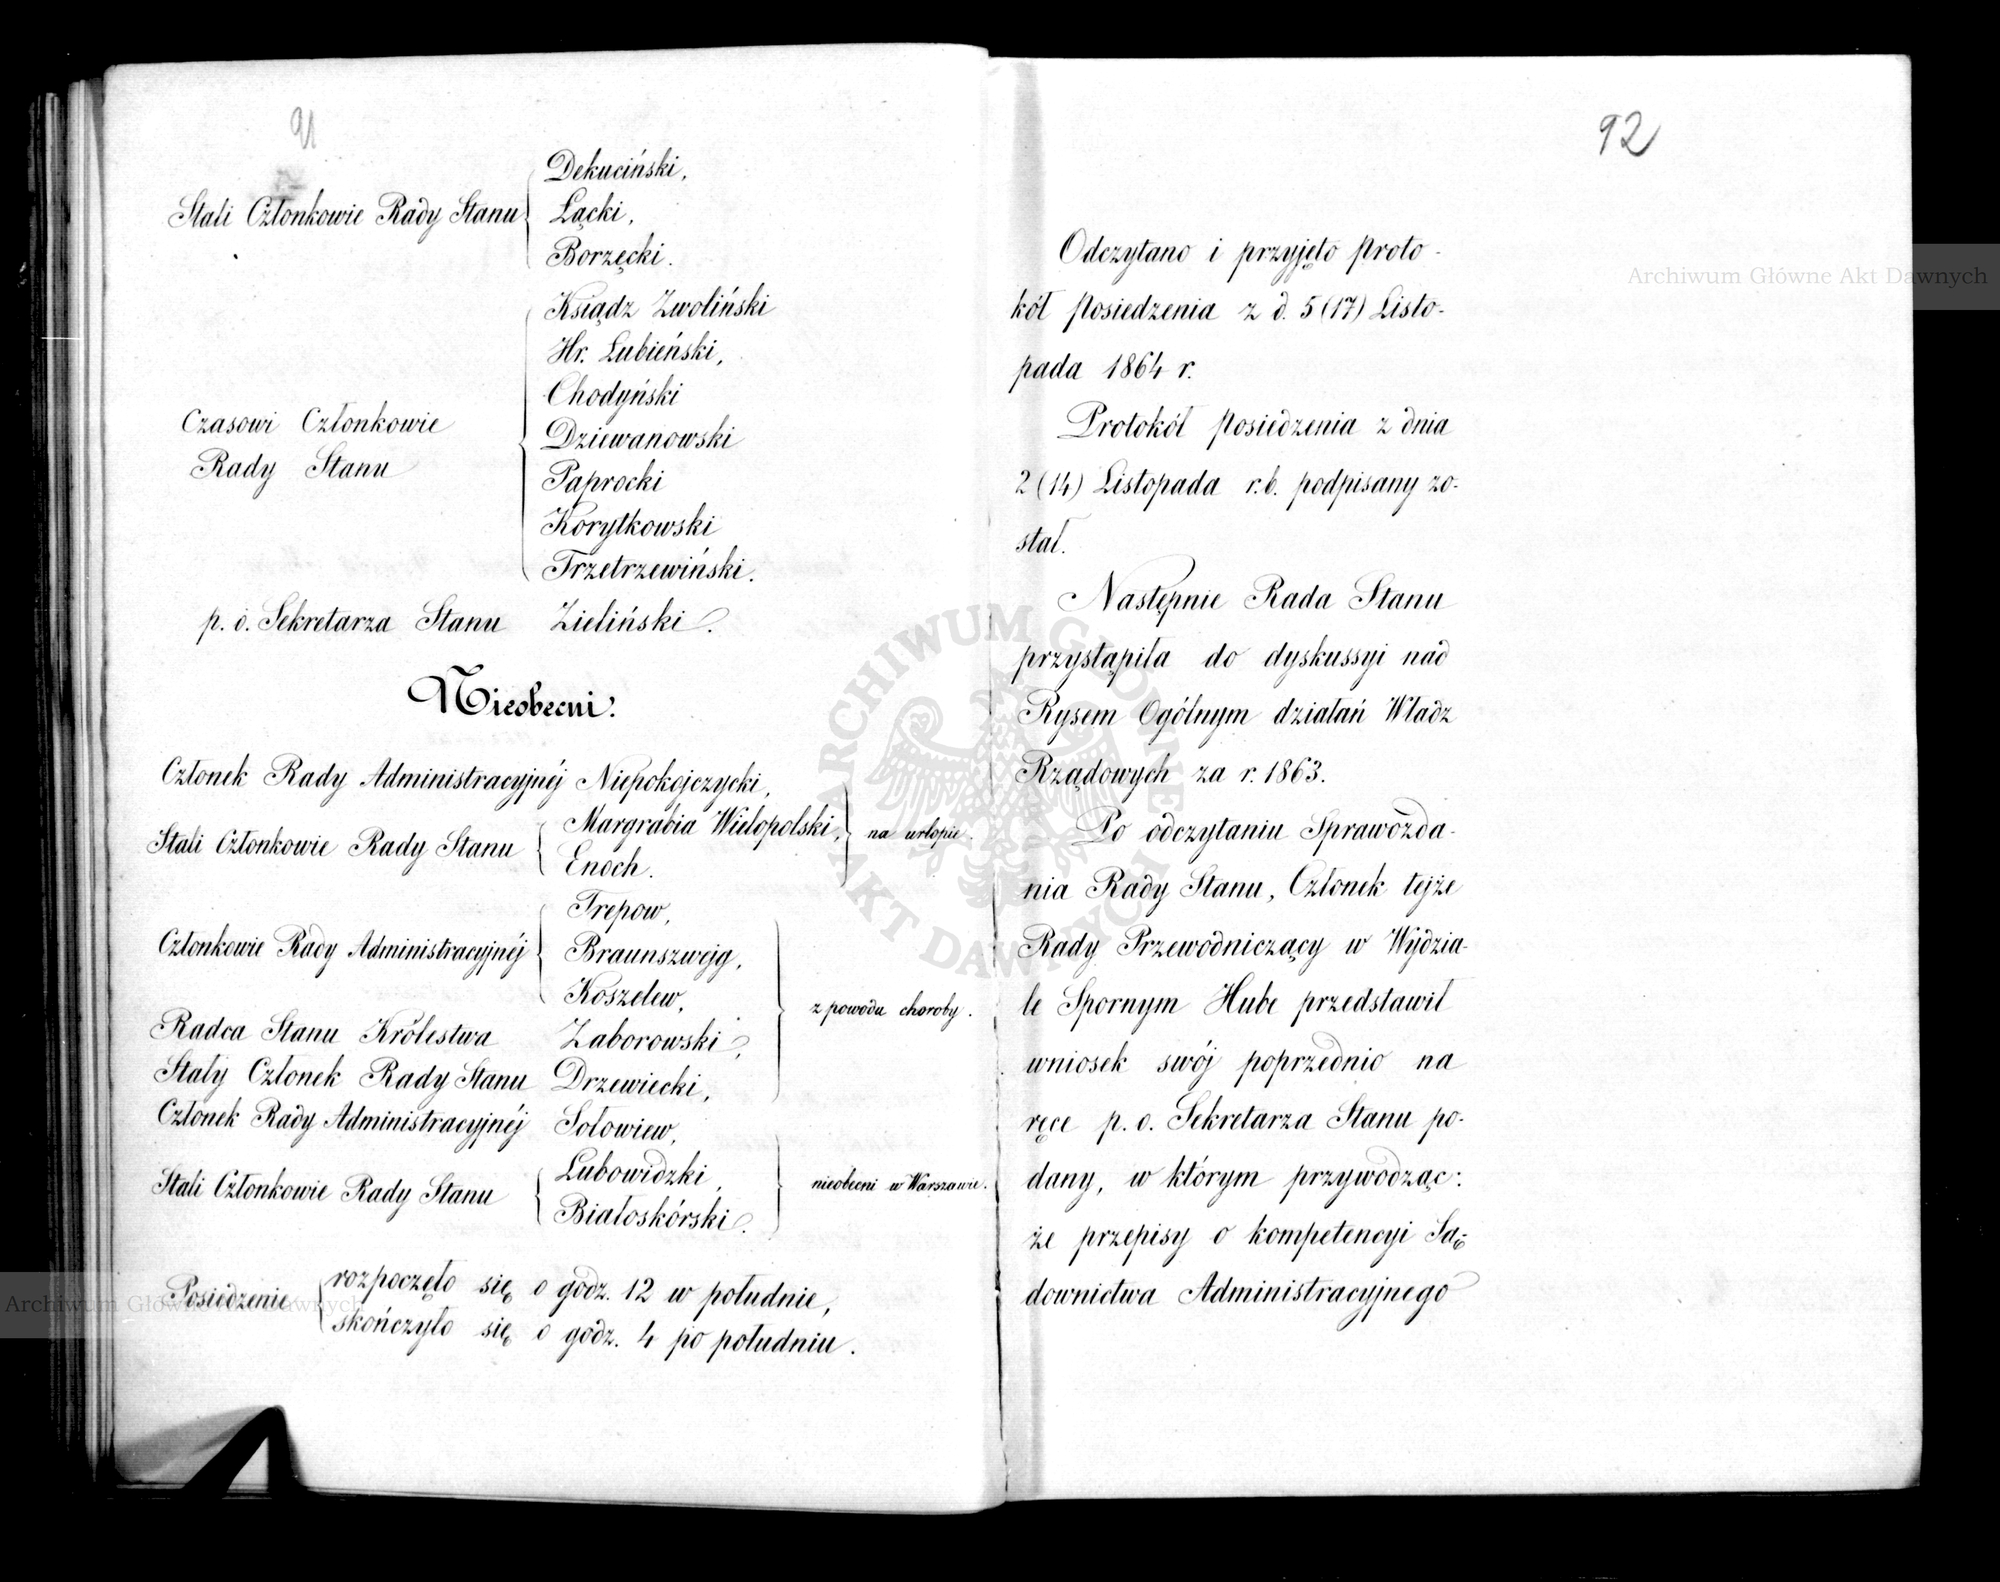 91
Stali Członkowie Rady Stanu
Dekuciński,
Łącki,
Borzęcki.
Czasowi Członkowie
Rady Stanu
Ksiądz Zwoliński
Hr. Łubieński,
Chodyński
Dziewanowski
Paprocki
Korytkowski
Trzetrzewiński.
p. o. Sekretarza Stanu Zieliński.
Nieobecni:
Członek Rady Administracyjnéj Niepokojczycki,
Stali Członkowie Rady Stanu
Margrabia Wielopolski,
Enoch.
na urlopie.
Członkowie Rady Administracyjnéj
Trepow,
Braunszwejg,
Koszelew,
Radca Stanu Królestwa Zaborowski,
Stały Członek Rady Stanu Drzewiecki,
z powodu choroby.
Członek Rady Administracyjnéj Sołowiew,
Stali Członkowie Rady Stanu
Lubowidzki,
Białoskórski.
nieobecni w Warszawie.
Posiedzenie
rozpoczęło się o godz. 12 w południe,
skończyło się o godz. 4 po południu.
92
Odczytano i przyjęto proto-
kół posiedzenia z d. 5 (17) Listo-
pada 1864 r.
Protokół posiedzenia z dnia
2 (14) Listopada r.b. podpisany zo-
stał.
Następnie Rada Stanu
przystąpiła do dyskussyi nad
Rysem Ogólnym działań Władz
Rządowych za r. 1863.
Po odczytaniu Sprawozda-
nia Rady Stanu, Członek tejże
Rady Przewodniczący w Wydzia-
le Spornym Hube przedstawił
wniosek swój poprzednio na
ręce p. o. Sekretarza Stanu po-
dany, w którym przywodząc:
że przepisy o kompetencyi Są-
downictwa Administracyjnego
Archiwum Główne Akt Dawnych
Archiwum Główne Akt Dawnych
ARCHIWUM GŁÓWNE AKT DAWNYCH